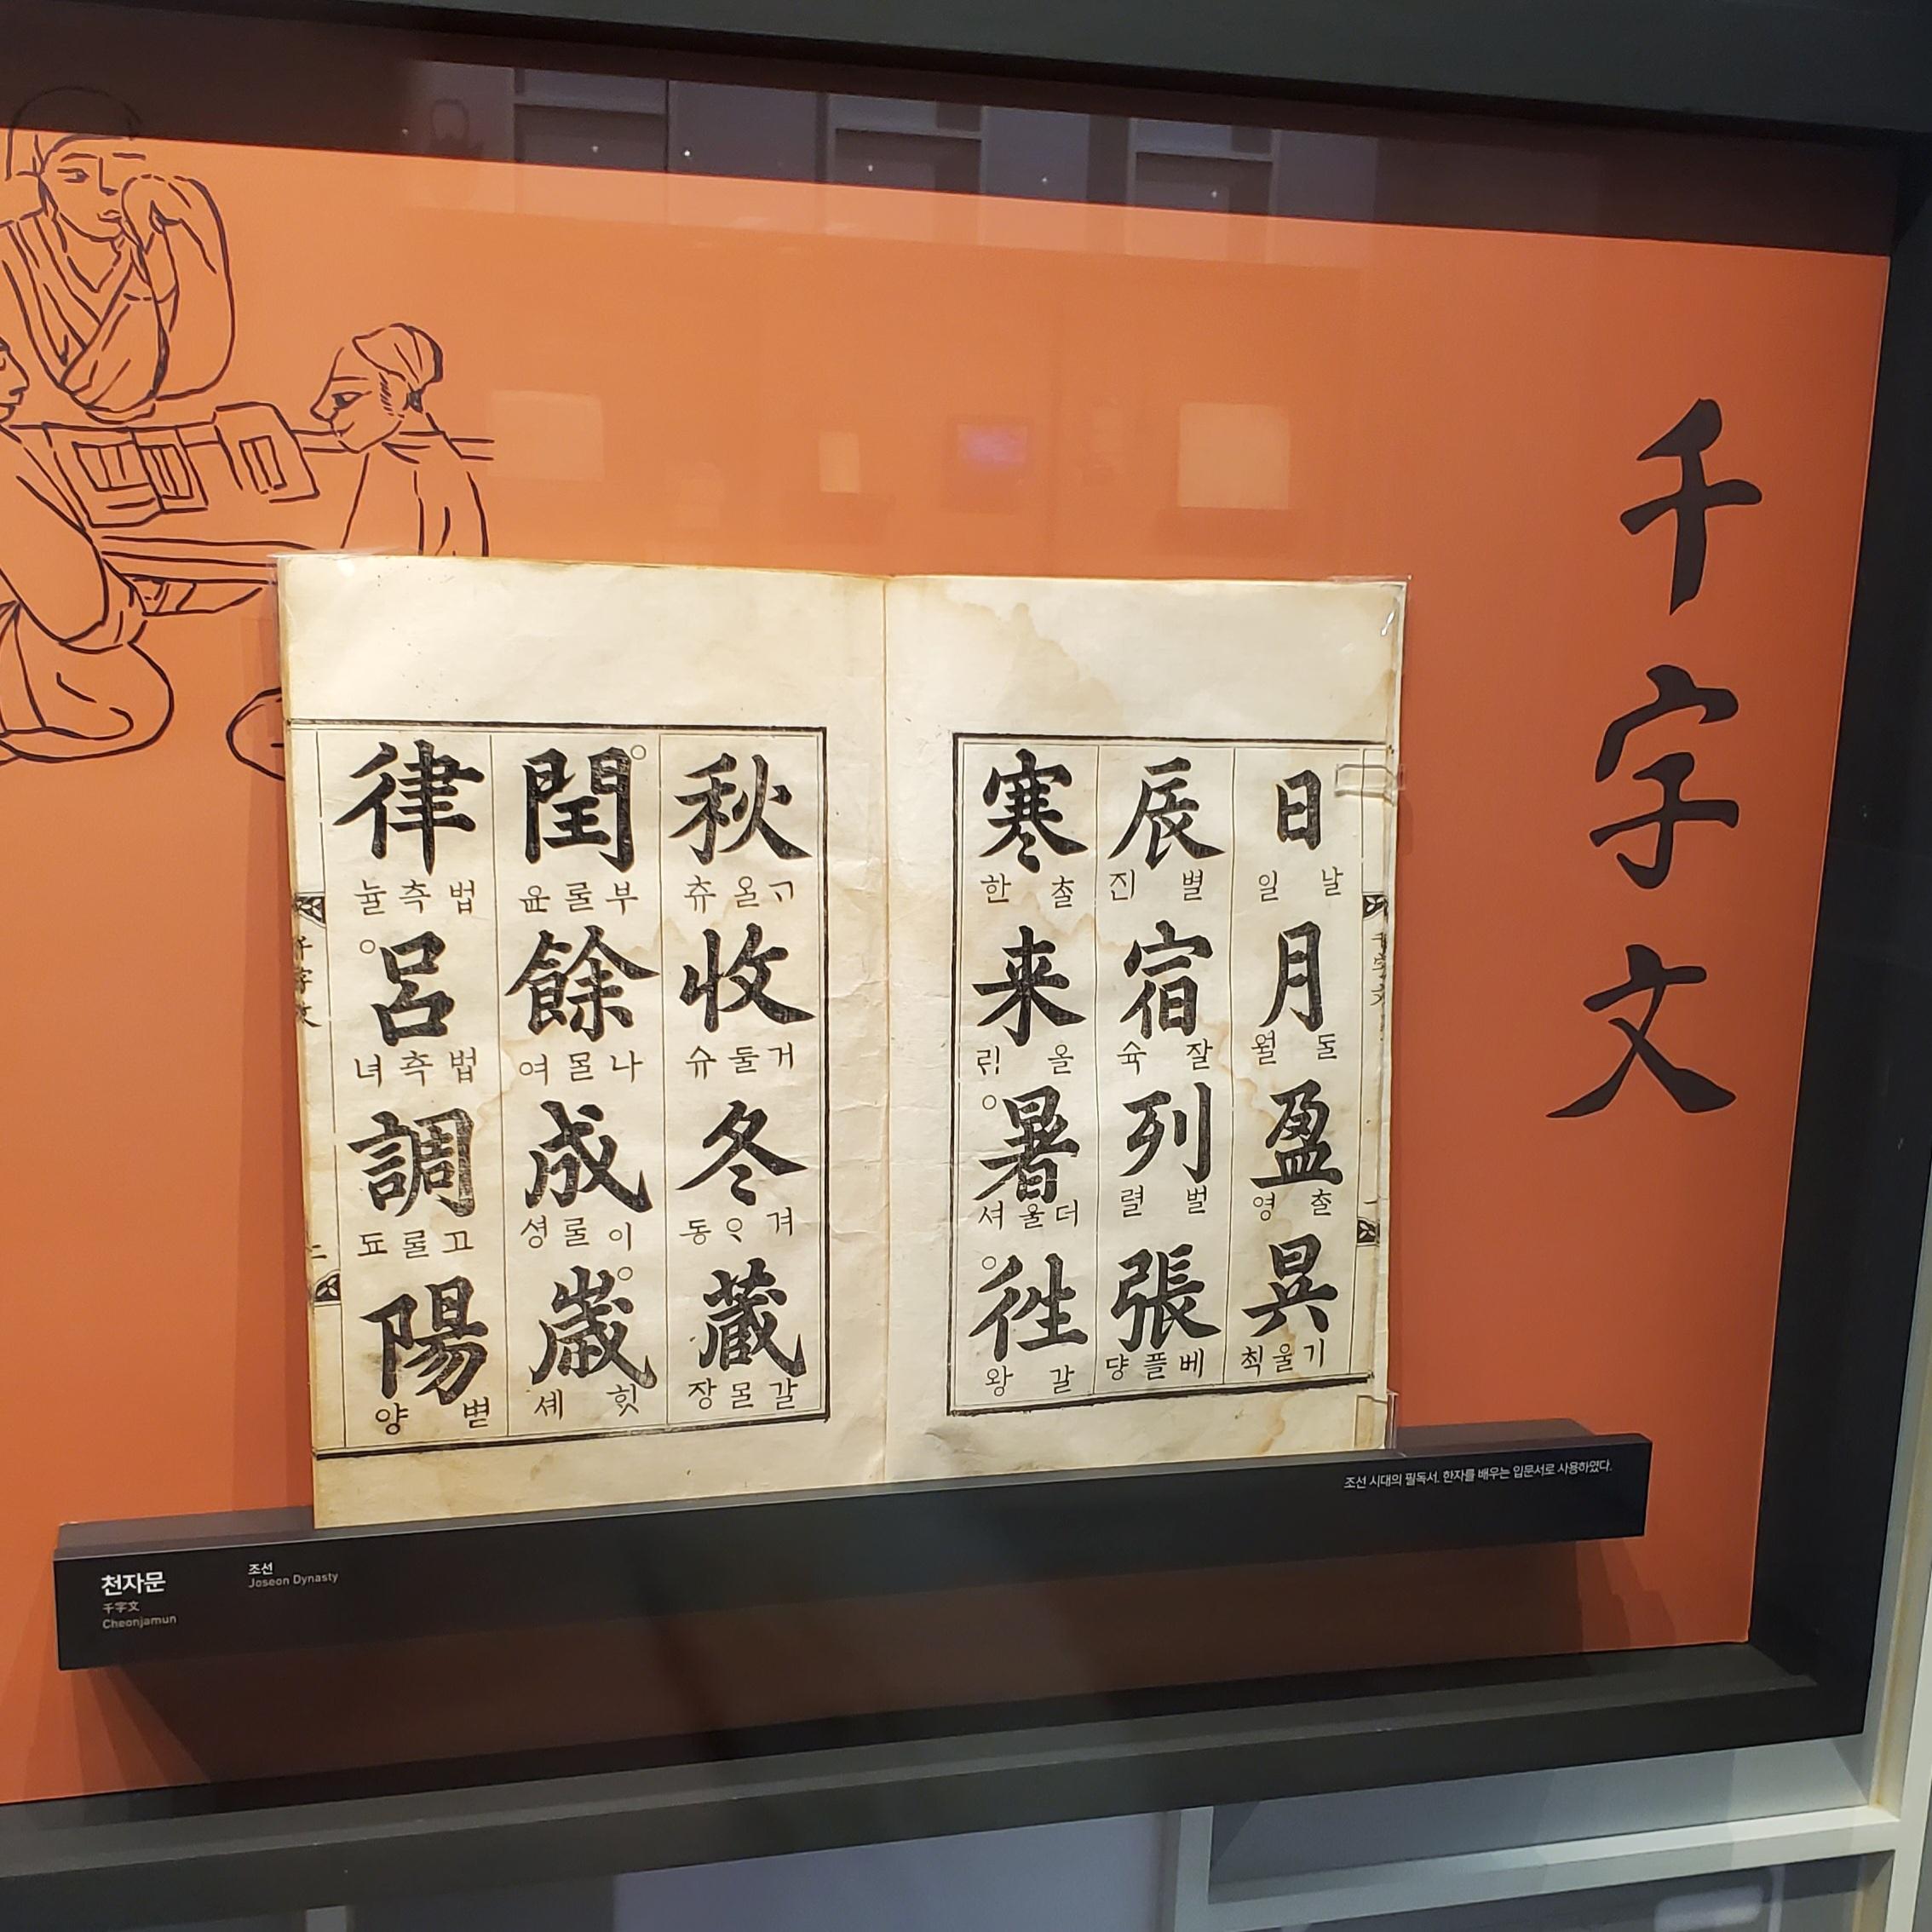 千字文
日 날 일
月 ᄃᆞᆯ 월
盈 ᄎᆞᆯ 영
昃 기울 칙
辰 별 진
宿 잘 슉
列 벌 렬
張 베플 댱
寒 ᄎᆞᆯ 한
来 올 ᄅᆡ
暑 더울 셔
徃 갈 왕
秋 ᄀᆞ올 츄
收 거둘 슈
冬 겨ᄋᆞ 동
藏 갈ᄆᆞᆯ 장
閏 부ᄅᆞᆯ 윤
餘 나ᄆᆞᆯ 여
成 이ᄅᆞᆯ 셩
歲 ᄒᆡᆺ 셰
律 법측 뉼
呂 법측 녀
調 고ᄅᆞᆯ 됴
陽 볃 양
千字文
二
조선 시대의 필독서. 한자를 배우는 입문서로 사용하였다.
천자문
千字文
Cheonjamun
조선
Joseon Dynasty